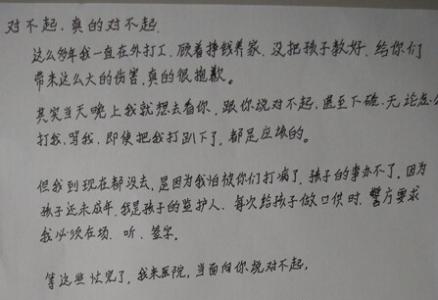 对不起，真的对不起。
这么多年我一直在外打工，顾着挣钱养家，没把孩子教好，给你们
带来这么大的伤害，真的很抱歉。
其实当天晚上我就想去看你，跟你说对不起，甚至下跪，无论怎么
打我，骂我，即使把我打趴下了，都是应该的。
但我到现在都没去，是因为我怕被你们打晕了，孩子的事办不了，因为
孩子还未成年，我是孩子的监护人，每次给孩子做口供时，警方要求
我必须在场、听、签字。
等这些忙完了，我来医院，当面向你说对不起。